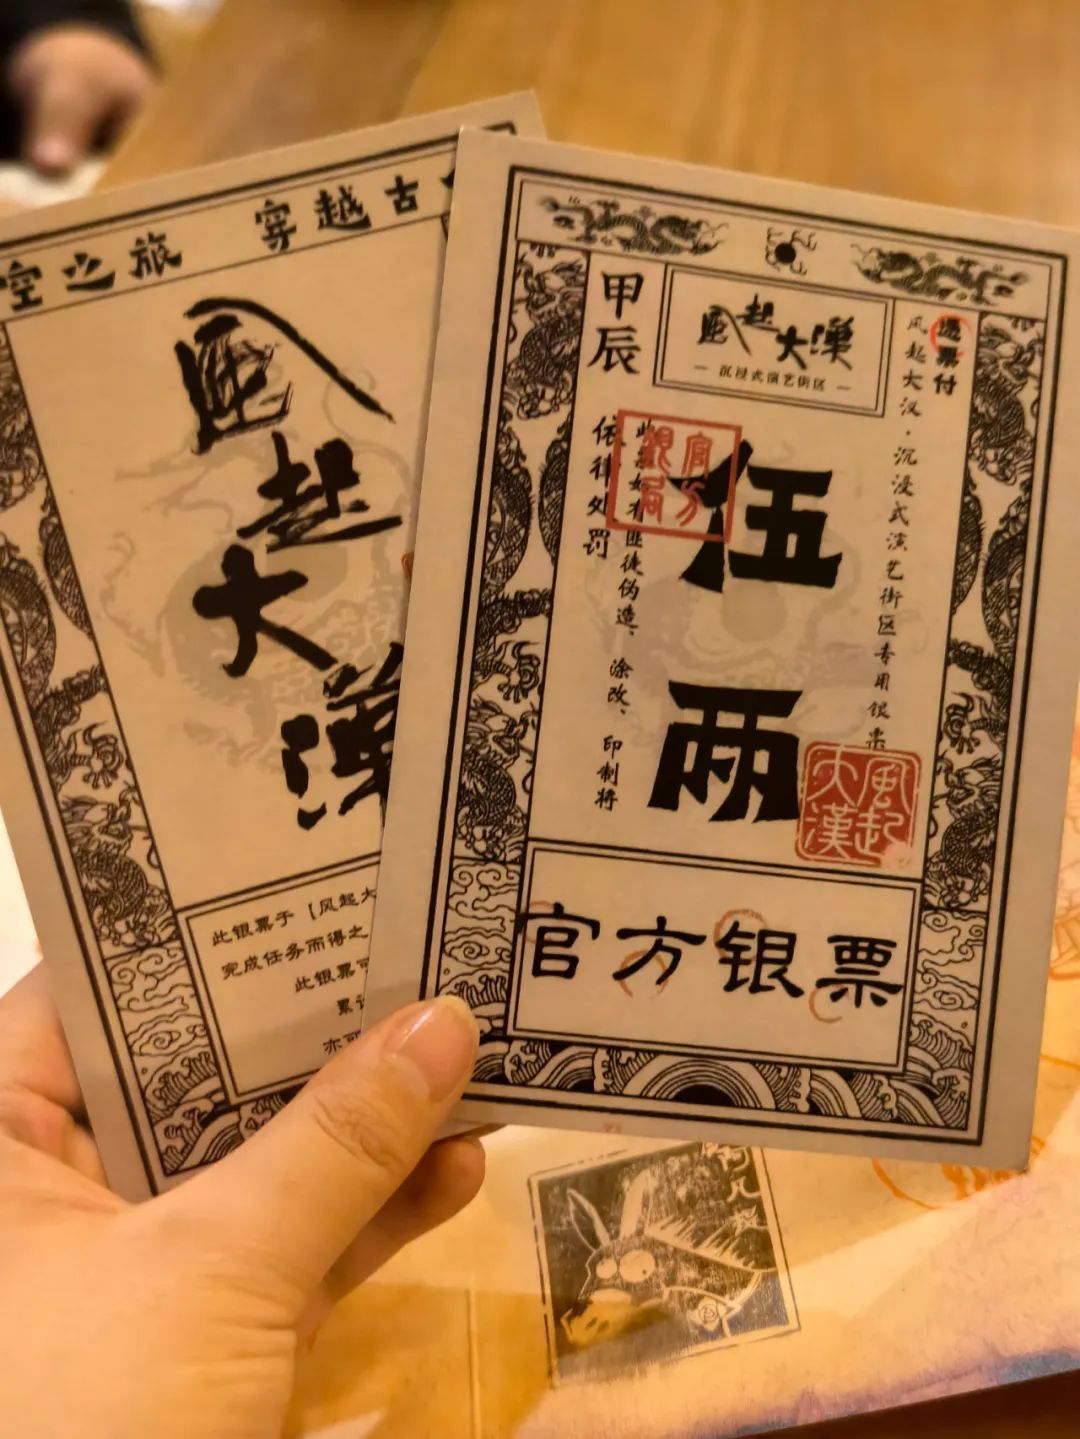 空之旅 穿越古
风起大漢
此银票于【风起大
完成任务而得之
此银票可
累计
亦可
甲辰
风起大漢
沉浸式演艺街区
凭票付
风起大汉·沉浸式演艺街区专用银票
伍两
此票如有匪徒伪造、涂改、印制将
依律处罚
官方
银局
風起
大漢
官方银票